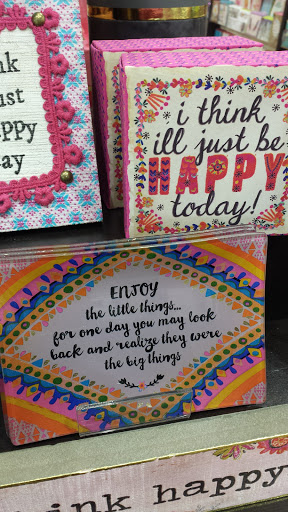 nk
ust
appy
ay
i think
ill just be
HAPPY
today!
ENJOY
the little things...
for one day you may look
back and realize they were
the big things
ink happy